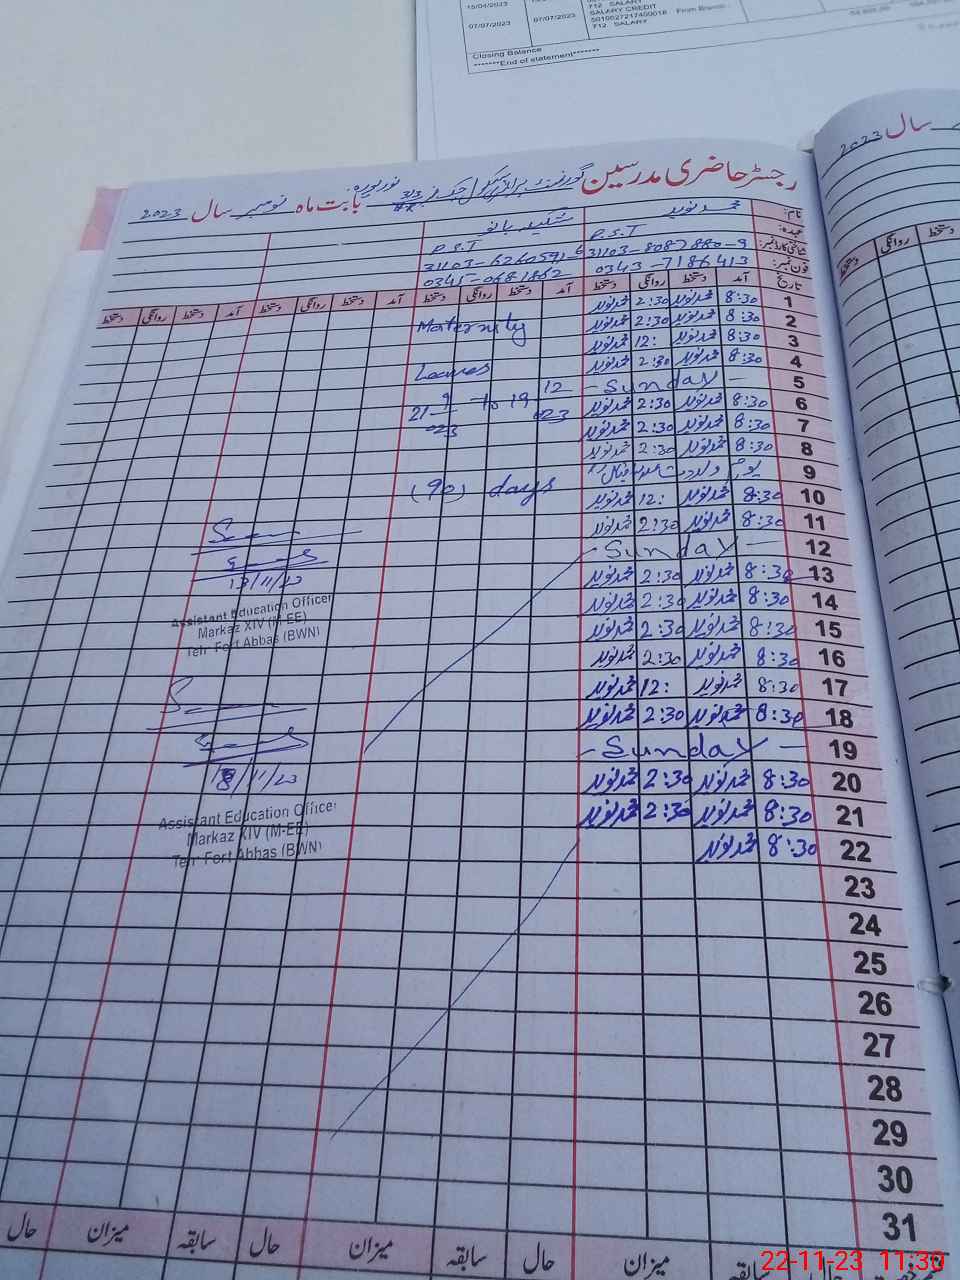 15/04/2023
712 SALARY
07/07/2023 07/07/2023 SALARY CREDIT
5010027217400018 From Branch:
712 SALARY
Closing Balance
*******End of statement*******
سال 2023
رجسٹر حاضری مدرسین گورنمنٹ پرائمری سکول چک نمبر
بابت ماہ نومبر سال 2023
نام: محمد نوید
عہدہ: P.S.T P.S.T
شناختی کارڈ نمبر: 31103-8087880-9 31103-6260591-6
فون نمبر: 0343-7186413 0345-0681862
تاریخ آمد دستخط روانگی دستخط آمد دستخط روانگی دستخط آمد دستخط روانگی دستخط آمد دستخط روانگی دستخط
1 8:30 محمد نوید 2:30 محمد نوید
2 8:30 محمد نوید 2:30 محمد نوید Maternity
3 8:30 محمد نوید 12: محمد نوید
4 8:30 محمد نوید 2:30 محمد نوید Leaves
5 - Sunday -
6 8:30 محمد نوید 2:30 محمد نوید 21-9-023 to 19-12-023
7 8:30 محمد نوید 2:30 محمد نوید
8 8:30 محمد نوید 2:30 محمد نوید
9 یوم ولادت علامہ اقبال
10 8:30 محمد نوید 12: محمد نوید (90) days
11 8:30 محمد نوید 2:30 محمد نوید
12 - Sunday -
13 8:30 محمد نوید 2:30 محمد نوید
14 8:30 محمد نوید 2:30 محمد نوید
15 8:30 محمد نوید 2:30 محمد نوید
16 8:30 محمد نوید 2:30 محمد نوید
17 8:30 محمد نوید 12: محمد نوید
18 8:30 محمد نوید 2:30 محمد نوید
19 - Sunday -
20 8:30 محمد نوید 2:30 محمد نوید
21 8:30 محمد نوید 2:30 محمد نوید
22 8:30 محمد نوید
23
24
25
26
27
28
29
30
31
13/11/23
Assistant Education Officer
Markaz XIV (M-EE)
Teh: Fort Abbas (BWN)
18/11/23
Assistant Education Officer
Markaz XIV (M-EE)
Teh: Fort Abbas (BWN)
حال سابقہ میزان حال سابقہ میزان حال سابقہ میزان حال
22-11-23 11:30